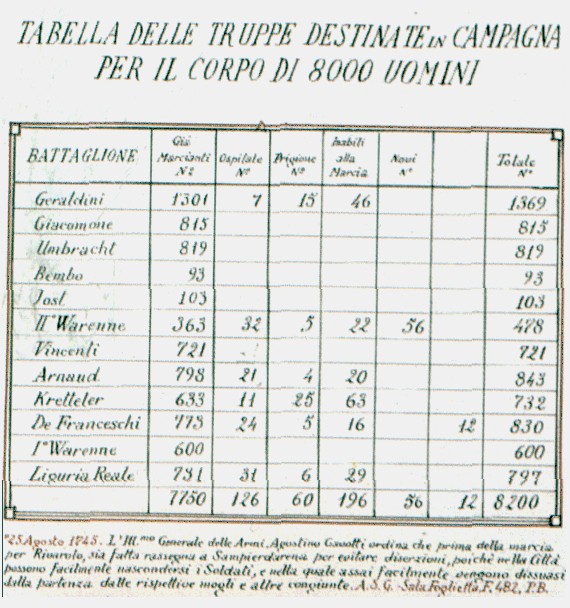 TABELLA DELLE TRUPPE DESTINATE IN CAMPAGNA
PER IL CORPO DI 8000 UOMINI
BATTAGLIONE Già Marcianti Nº Ospitale Nº Prigione Nº Inabili alla Marcia Novi Nº Totale Nº
Geraldini 1301 7 15 46 1369
Giacomone 815 815
Umbracht 819 819
Bembo 93 93
Josl 103 103
IIº Warenne 363 32 5 22 56 478
Vincenti 721 721
Arnaud 798 21 4 20 843
Kretteler 633 11 25 63 732
De Franceschi 773 24 5 16 12 830
Iº Warenne 600 600
Liguria Reale 731 31 6 29 797
7750 126 60 196 56 12 8200
"25 Agosto 1745. L'Ill.mo Generale delle Armi, Agostino Gavotti ordina che prima della marcia
per Rivarolo, sia fatta rassegna a Sampierdarena per evitare diserzioni, poichè nella Città
possono facilmente nascondersi i Soldati, e nella quale assai facilmente vengono dissuasi
dalla partenza dalle rispettive mogli e altre congiunte. A.S.G.-Sala Foglietta F. 482, P.B.